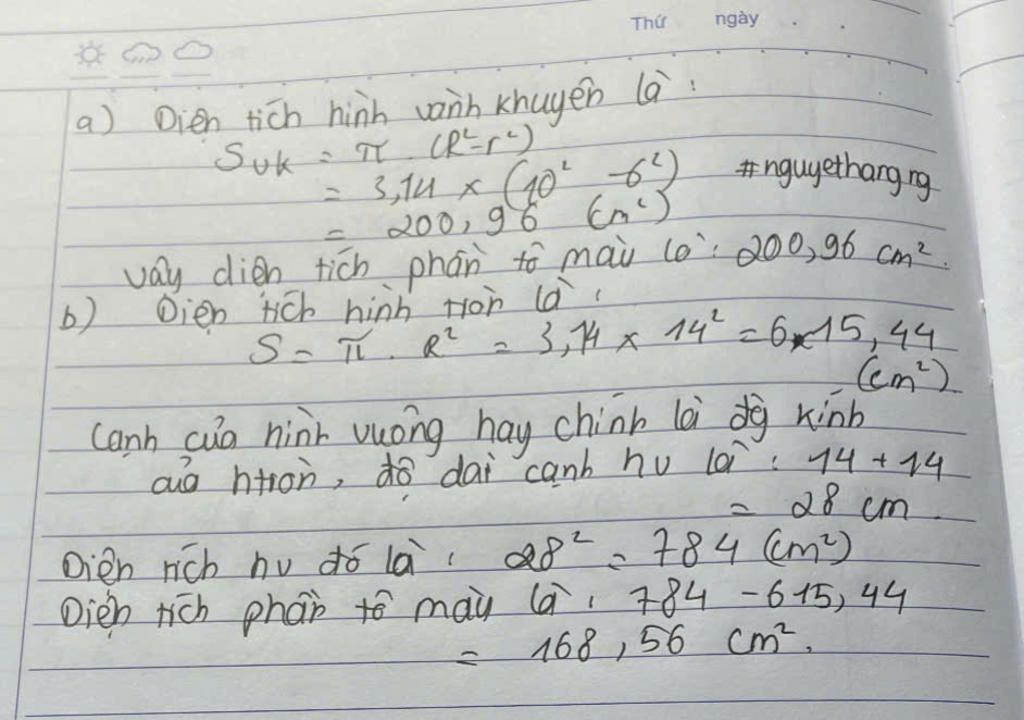 Thứ ngày . .
a) Diện tích hình vành khuyên là :
Svk = π . (R²-r²)
= 3,14 × (10² -6²) #nguyethang.ng
= 200,96 (m²)
vậy diện tích phần tô màu là : 200,96 cm².
b) Diện tích hình tròn là :
S = π . R² = 3,14 × 14² = 615,44
(cm²)
Cạnh của hình vuông hay chính là đg kính
của htròn, độ dài cạnh hv là : 14 + 14
= 28 cm.
Diện tích hv đó là : 28² = 784 (cm²)
Diện tích phần tô màu là : 784 - 615,44
= 168,56 cm².